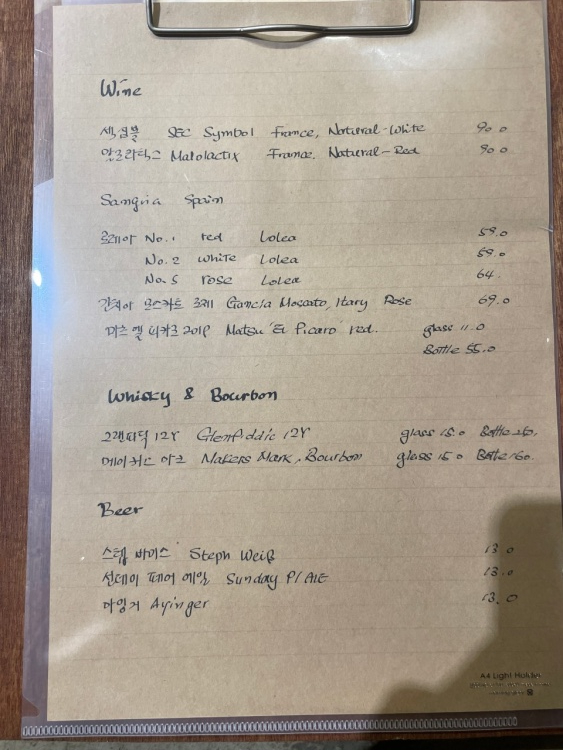 Wine
섹 심볼 SEC Symbol France, Natural-White 90.0
말로라틱스 Malolactix France. Natural-Red 90.0
Sangria Spain
로레아 No.1 red Lolea 59.0
No.2 white Lolea 59.0
No.5 rose Lolea 64.
간치아 모스카토 로제 Gancia Moscato, Itary Rose 69.0
마츠 엘 피카로 2019 Matsu 'El Picaro' red. glass 11.0
Bottle 55.0
Whisky & Bourbon
그랜피딕 12Y Glenfiddic 12Y glass 15.0 Bottle
메이커스 마크 Makers Mark, Bourbon glass 15.0 Bottle 160.
Beer
스텝 바이스 Steph Weiß 13.0
선데이 페어 에일 Sunday P/ALE 13.0
아잉거 Ayinger 13.0
A4 Light Holder